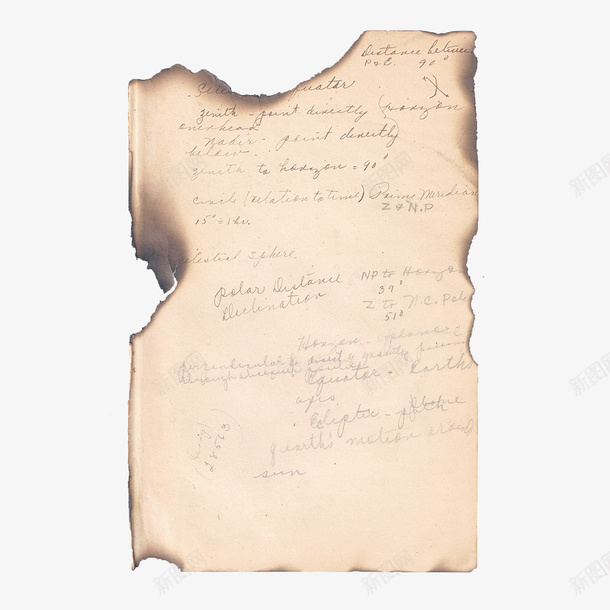 Distance between
P & C. 90°
Equator
zenith - point directly horizon
overhead
Nadir - point directly
below.
zenith to horizon = 90°
circle (relation to time) Prime Meridian
Z & N.P
15° = 1 hr.
celestial sphere
Polar Distance NP to Horizon
39°
Declination Z to N.C. Pole
51°
Horizon - plane
perpendicular to gravity passing
through
Equator - Earth's
axis
Ecliptic - plane
earth's motion around
sun